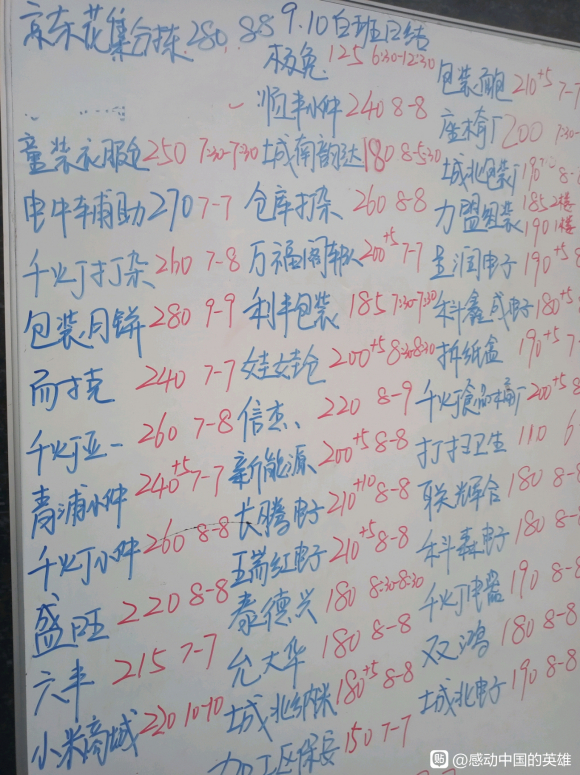 京东花集分拣 280 88 9.10白班日结
童装衣服仓 250 7:30-7:30
电牛车辅助 270 7-7
千灯打杂 260 7-8
包装月饼 280 9-9
而克 240 7-7
千灯亚一 260 7-8
青浦小件 240+5 7-7
千灯小件 260 8-8
盛旺 220 8-8
六丰 215 7-7
小米商城 220 10-10
杨兔 125 6:30-12:30
顺丰小件 240 8-8
城南韵达 180 8-5:30
仓库打杂 260 8-8
万福阁 200+5 7-7
利丰包装 185 7:30-7:30
娃娃仓 200+5 8:30-8:30
信杰 220 8-9
新能源 200+5 8-8
长腾电子 210+10 8-8
瑞红电子 210+5 8-8
泰德兴 180 8:30-8:30
允大华 180 8-8
城北纳米 180+5 8-8
加工区保安 150 7-7
包装面包 210+5 7-7
座椅厂 200 7:30-
城北包装厂 190 8-8
力盟组装 185 2楼
190 1楼
润电子 190+5 8
科鑫成电子 180+5
拆纸盒 190+5 7-
千灯食品桶厂 200+5 8
打扫卫生 110 6
联辉合 180 8-8
科森电子 180 8-8
千灯电器 190 8-8
双鸿 180 8-8
城北电子 190 8-8
贴 @感动中国的英雄